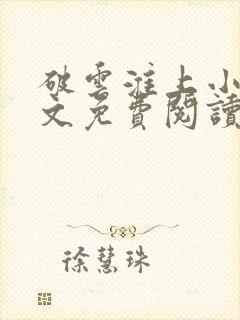 破雲淮上小
文免費閱讀
徐慧珠